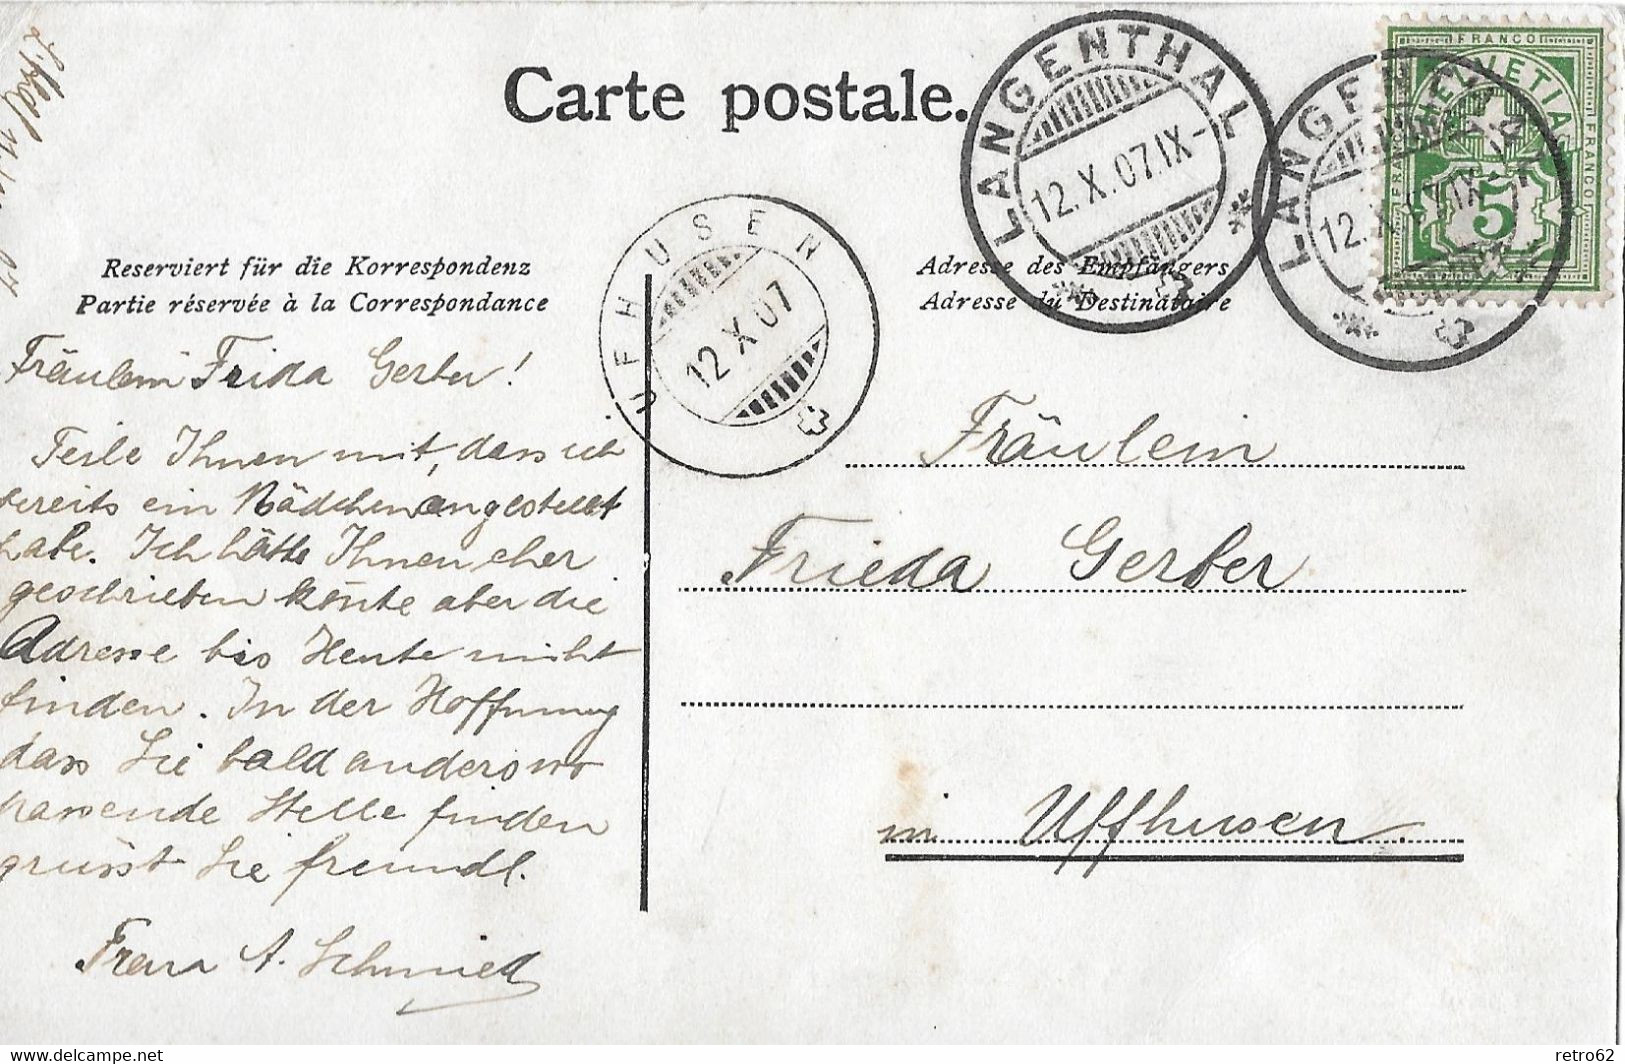 Carte postale.
FRANCO
HELVETIA
FRANCO
FRANCO
5
LANGENTHAL
12.X.07.IX-
LANGENTHAL
12.X.07.IX-
UFHUSEN
12 X 07
Reserviert für die Korrespondenz
Partie réservée à la Correspondance
Adresse des Empfängers
Adresse du Destinataire
Fräulein Frida Gerber!
Teile Ihnen mit, dass ich
bereits ein Mädchen angestellt
habe. Ich hätte Ihnen eher
geschrieben könte aber die
Adresse bis Heute nicht
finden. In der Hoffnung
dass Sie bald anderswo
passende Stelle finden
grüsst Sie freundl.
Frau A. Schmied
Fräulein
Frieda Gerber
in Uffhusen.
delcampe.net
retro62